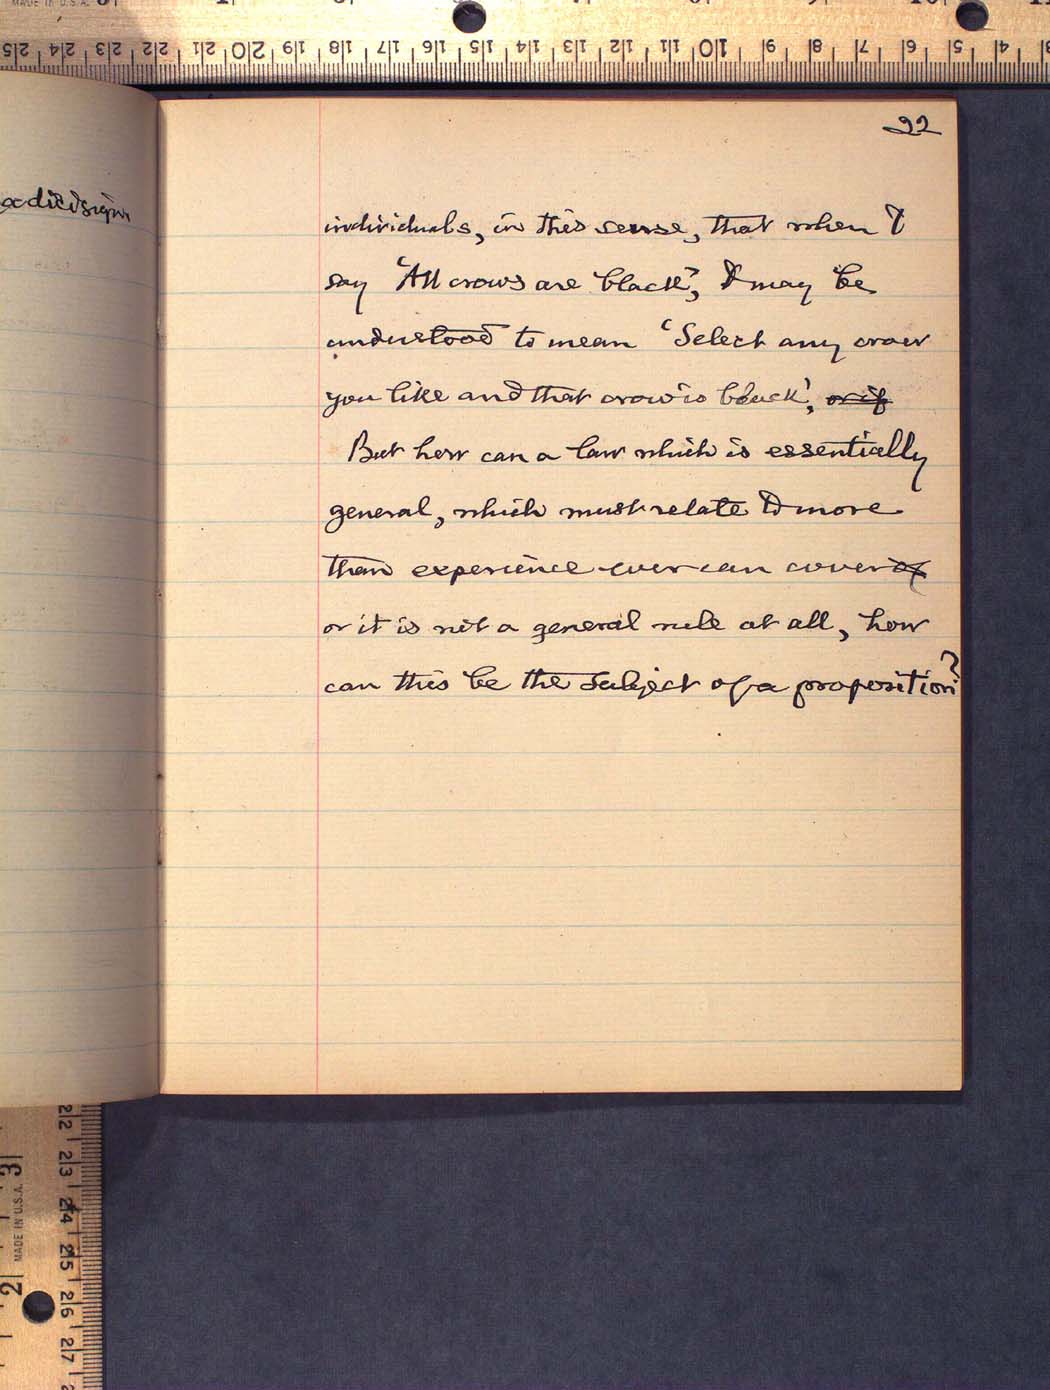 MADE IN U.S.A.
25 24 23 22 21 20 19 18 17 16 15 14 13 12 11 10 9 8 7 6 5 4 3
22
individuals, in this sense, that when I
say 'All crows are black', I may be
understood to mean 'Select any crow
you like and that crow is black', or if
But how can a law which is essentially
general, which must relate to more
than experience ever can cover of
or it is not a general rule at all, how
can this be the subject of a proposition?
22 23 24 25 26 27
3
MADE IN U.S.A.
2